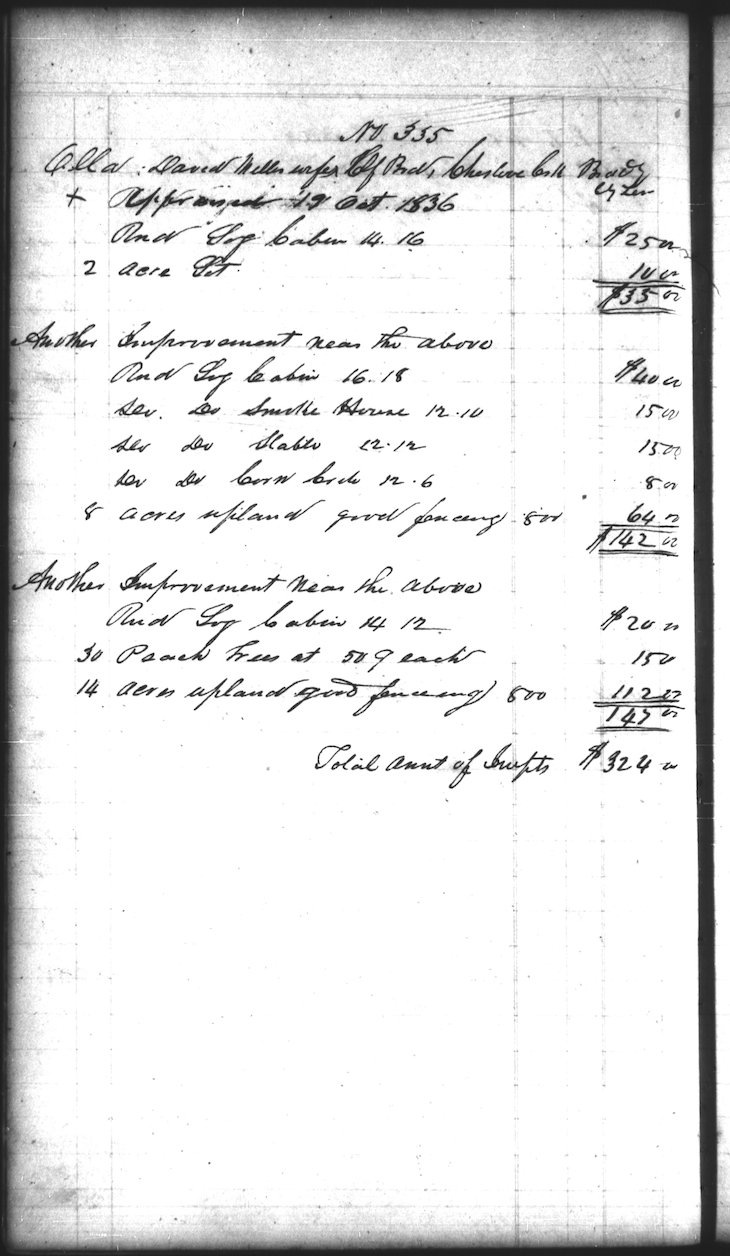 No 335
Olla : David Wells wifes Cf Brd, Chestove Crk Bradly
cy ten
+ Appraised 19 Oct. 1836
Rnd Log Cabin 14. 16 $25 00
2 acre Lot 10 00
$35 00
Another Improvement near the above
Rnd Log Cabin 16.18 $40 00
do. Do Smoke House 12.10 15 00
do Do Stable 12.12 15 00
do Do Corn Crib 12.6 8 00
8 acres upland good fenceing 800 64 00
$142 00
Another Improvement near the above
Rnd Log Cabin 14 12 $20 00
30 Peach trees at 50 ¢ each 15 0
14 acres upland good fenceing 800 112 00
147 00
Total Amnt of Imepts $324 00